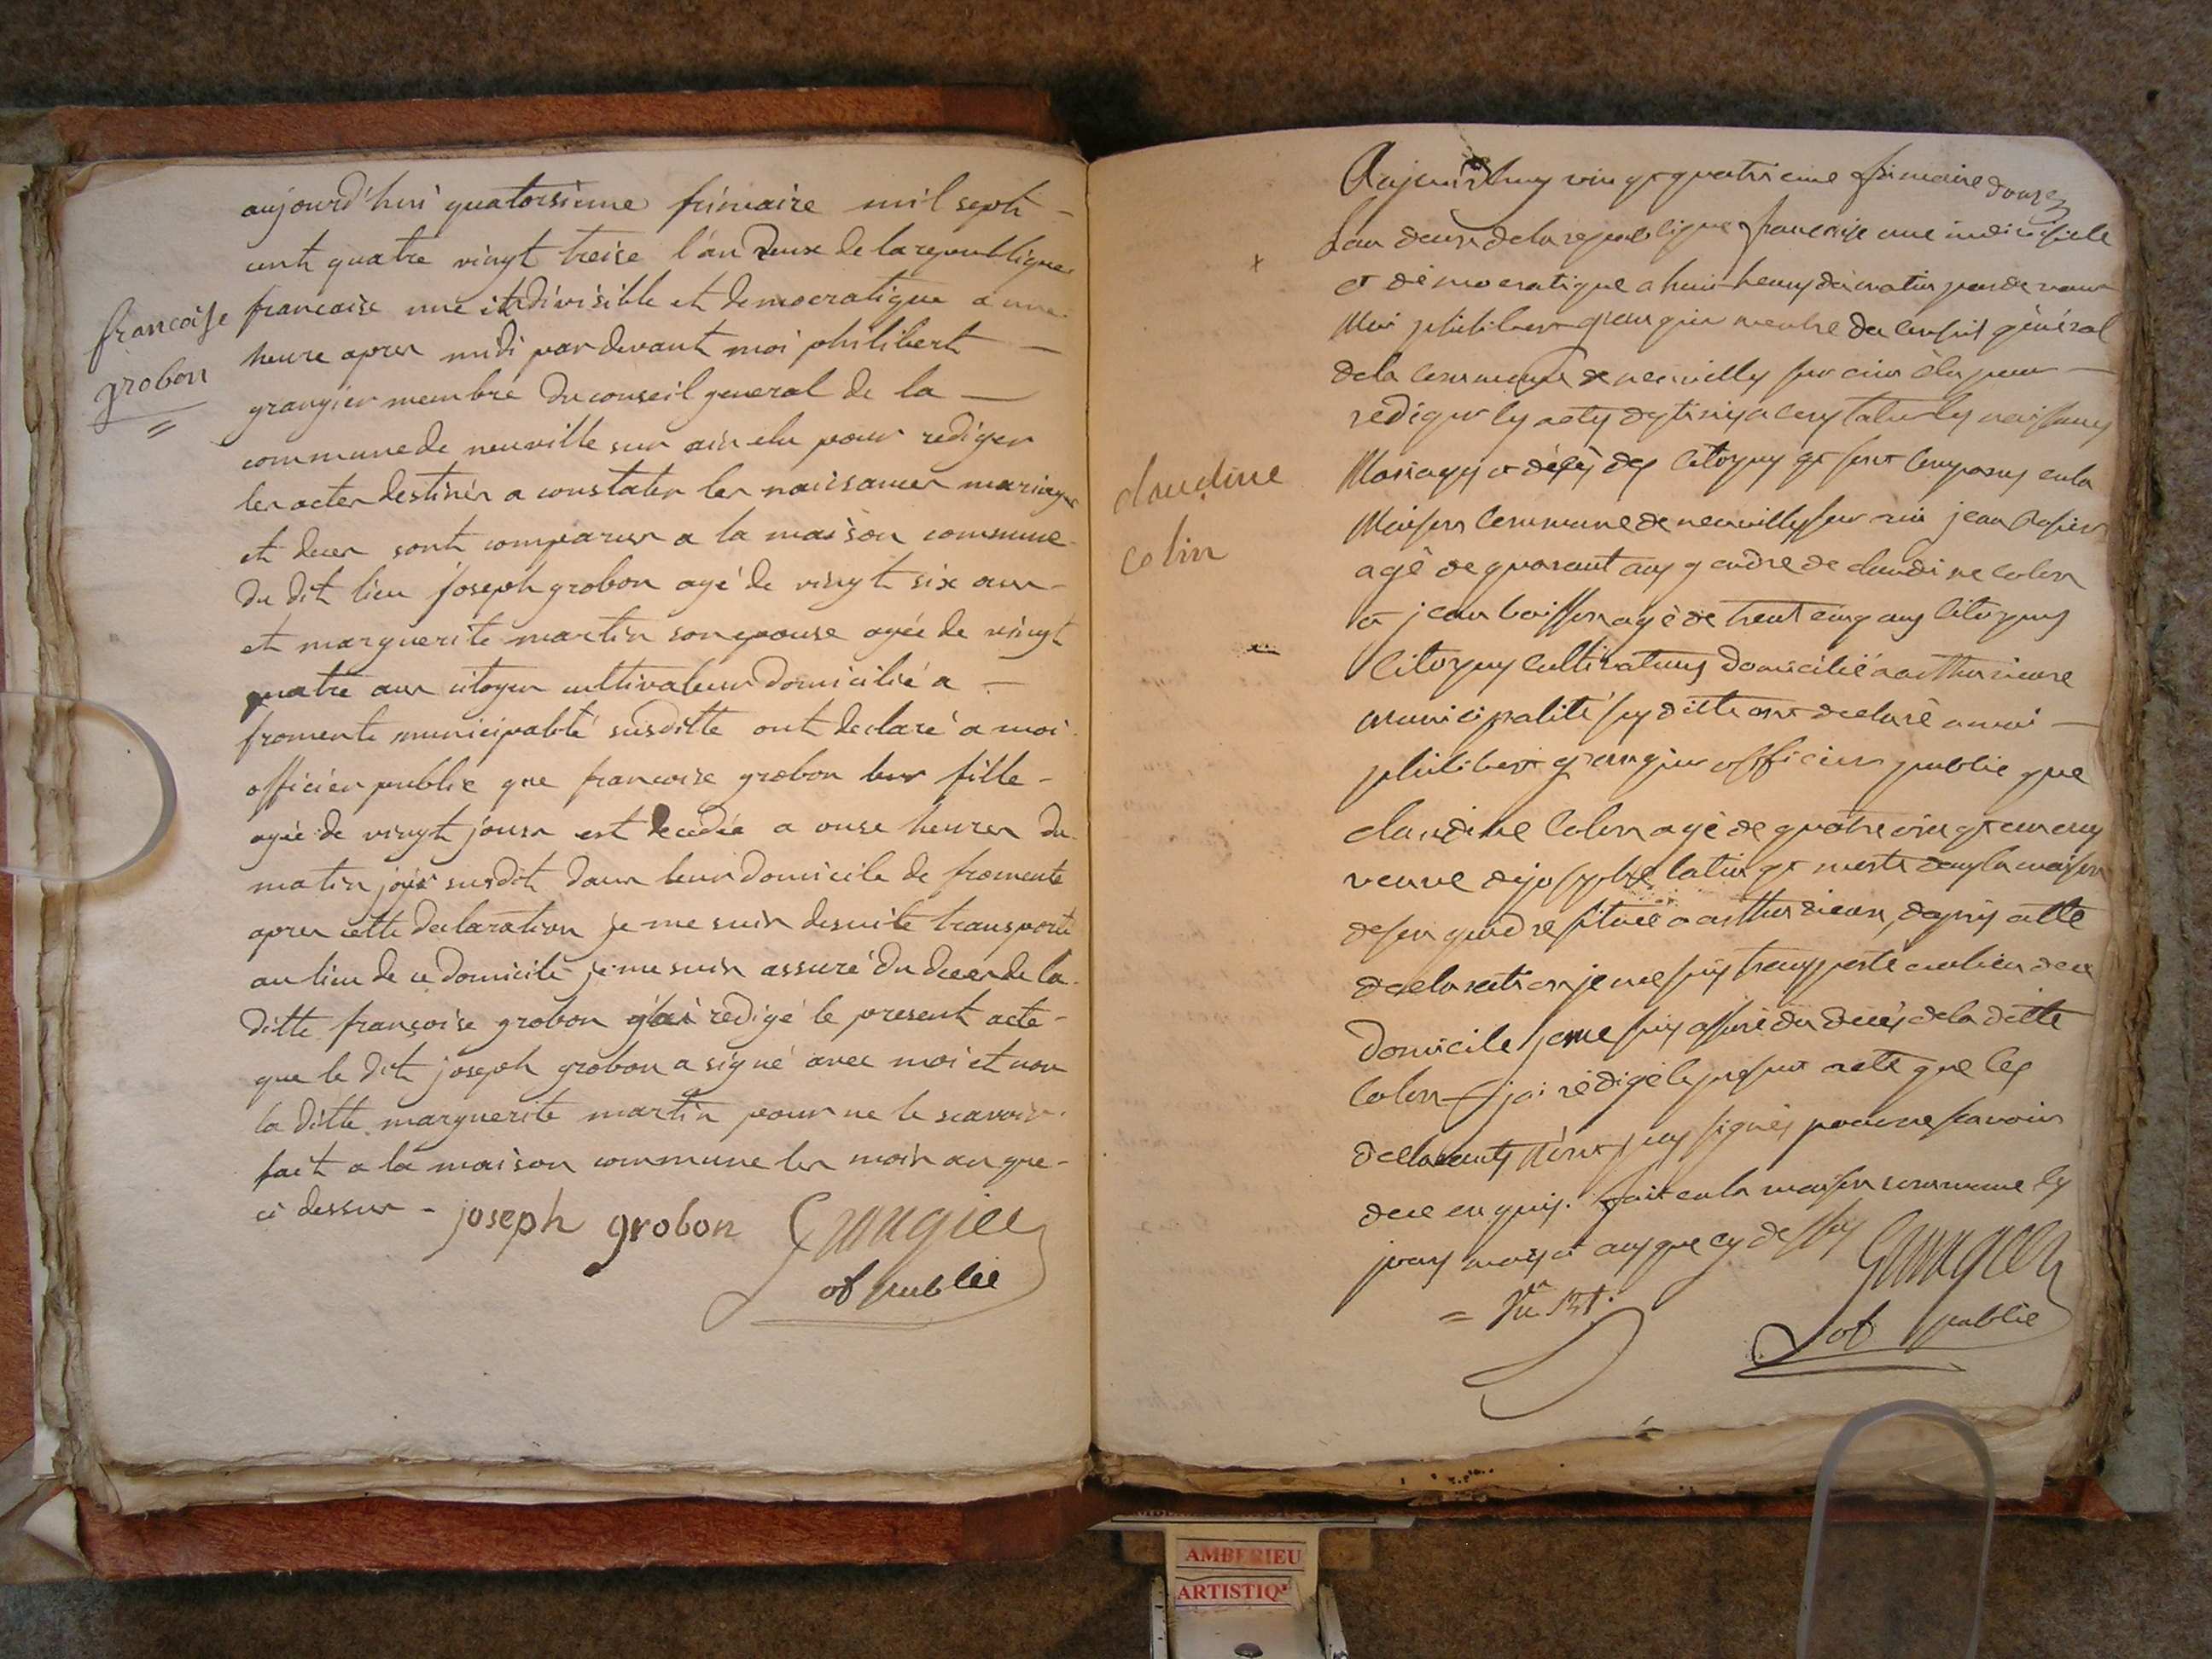 françoise
grobon
aujourd'hui quatorsieme frimaire mil sept
cent quatre vingt treise l'an deux de la republique
francaise une indivisible et democratique a une
heure apres midi par devant moi philibert
grangier membre du conseil general de la
commune de neuville sur ain elu pour rediger
les actes destinés a constater les naissances mariages
et deces sont comparus a la maison commune
du dit lieu joseph grobon agé de vingt six ans
et marguerite martin son epouse agée de vingt
quatre ans citoyen cultivateur domicilié a
fromente municipalité susditte ont declaré a moi
officier public que francoise grobon leur fille
agée de vingt jours est decedée a onse heures du
matin jour susdit dans leur domicile de fromente
apres cette declaration je me suis desuite transporté
au lieu de ce domicile je me suis assuré du deces de la
ditte françoise grobon j'ai redigé le present acte
que le dit joseph grobon a signé avec moi et non
la ditte marguerite martin pour ne le scavoir
fait a la maison commune les mois an que
ci dessus - joseph grobon Grangier
of public
claudine
colin
Aujourdhuy vingt quatrieme frimaire
Lan deux de la republique francaise une indivisible
et démocratique a huit heures du matin par devant
Moi philibert grangier membre du conseil général
de la commune de neuville sur ain élu pour
rédiger les actes destinés a constater les naissances
Mariages et décés des citoyens et sont comparus en la
Maison commune de neuville sur ain jean
agé de quarant ans gendre de claudine colin
et jean agé de trent cinq ans citoyens
Citoyens cultivateurs domicilié a
municipalité susditte ont declaré a moi
philibert grangier officier public que
claudine colin agé de quatre vingt
veuve de joseph est morte dans la maison
de son gendre située a apres cette
declaration je me suis transporté au lieu de ce
domicile je me suis assuré du decés de la ditte
colin j'ai rédigé le present acte que les
declarants n'ont pas signés pour ne savoir
de ce enquis. fait en la maison commune les
jours mois et ans que cy dessus Grangier
of public